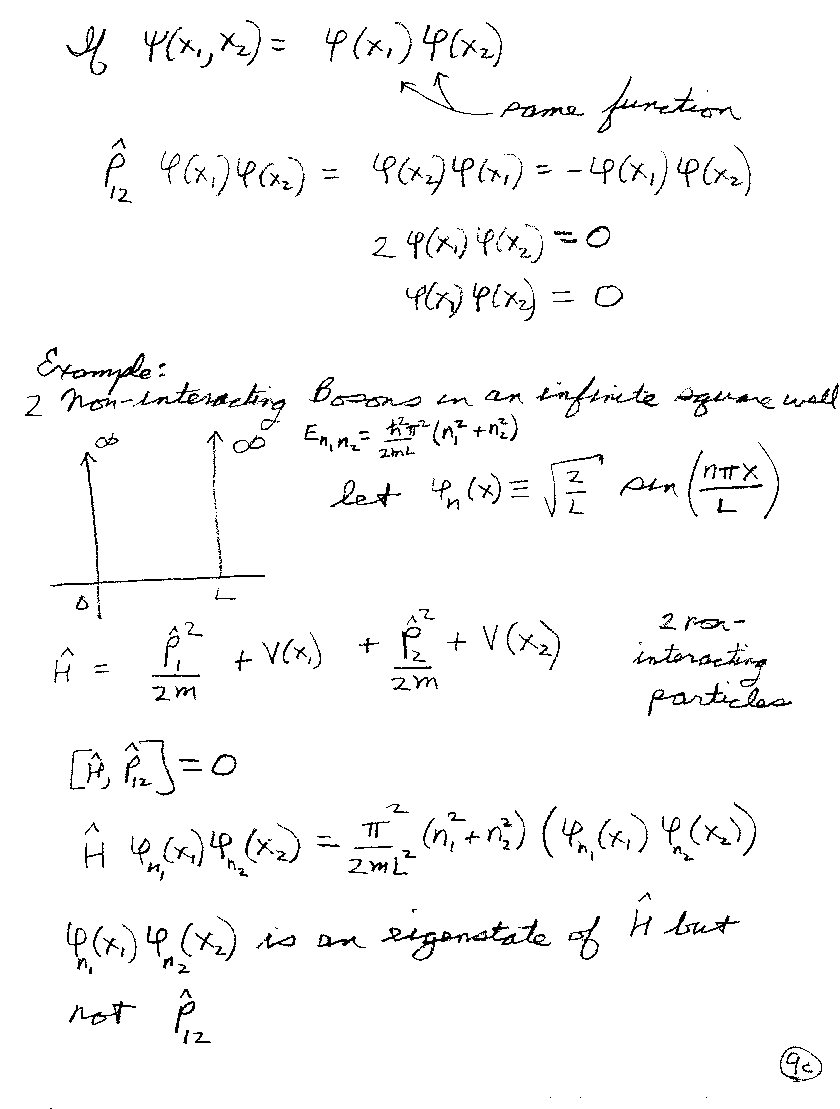 If Ψ(x₁,x₂) = φ(x₁) φ(x₂)
same function
P̂₁₂ φ(x₁)φ(x₂) = φ(x₂)φ(x₁) = -φ(x₁)φ(x₂)
2 φ(x₁)φ(x₂) = 0
φ(x₁)φ(x₂) = 0
Example:
2 Non-interacting Bosons in an infinite square well
∞ ∞ E_{n₁n₂} = ħ²π²/2mL (n₁²+n₂²)
let φₙ(x) ≡ √(2/L) sin(nπx/L)
0 L
Ĥ = P̂₁²/2m + V(x₁) + P̂₂²/2m + V(x₂)
2 non-
interacting
particles
[Ĥ, P̂₁₂] = 0
Ĥ φ_{n₁}(x₁)φ_{n₂}(x₂) = π²/2mL² (n₁²+n₂²) (φ_{n₁}(x₁) φ_{n₂}(x₂))
φ_{n₁}(x₁) φ_{n₂}(x₂) is an eigenstate of Ĥ but
not P̂₁₂
9c